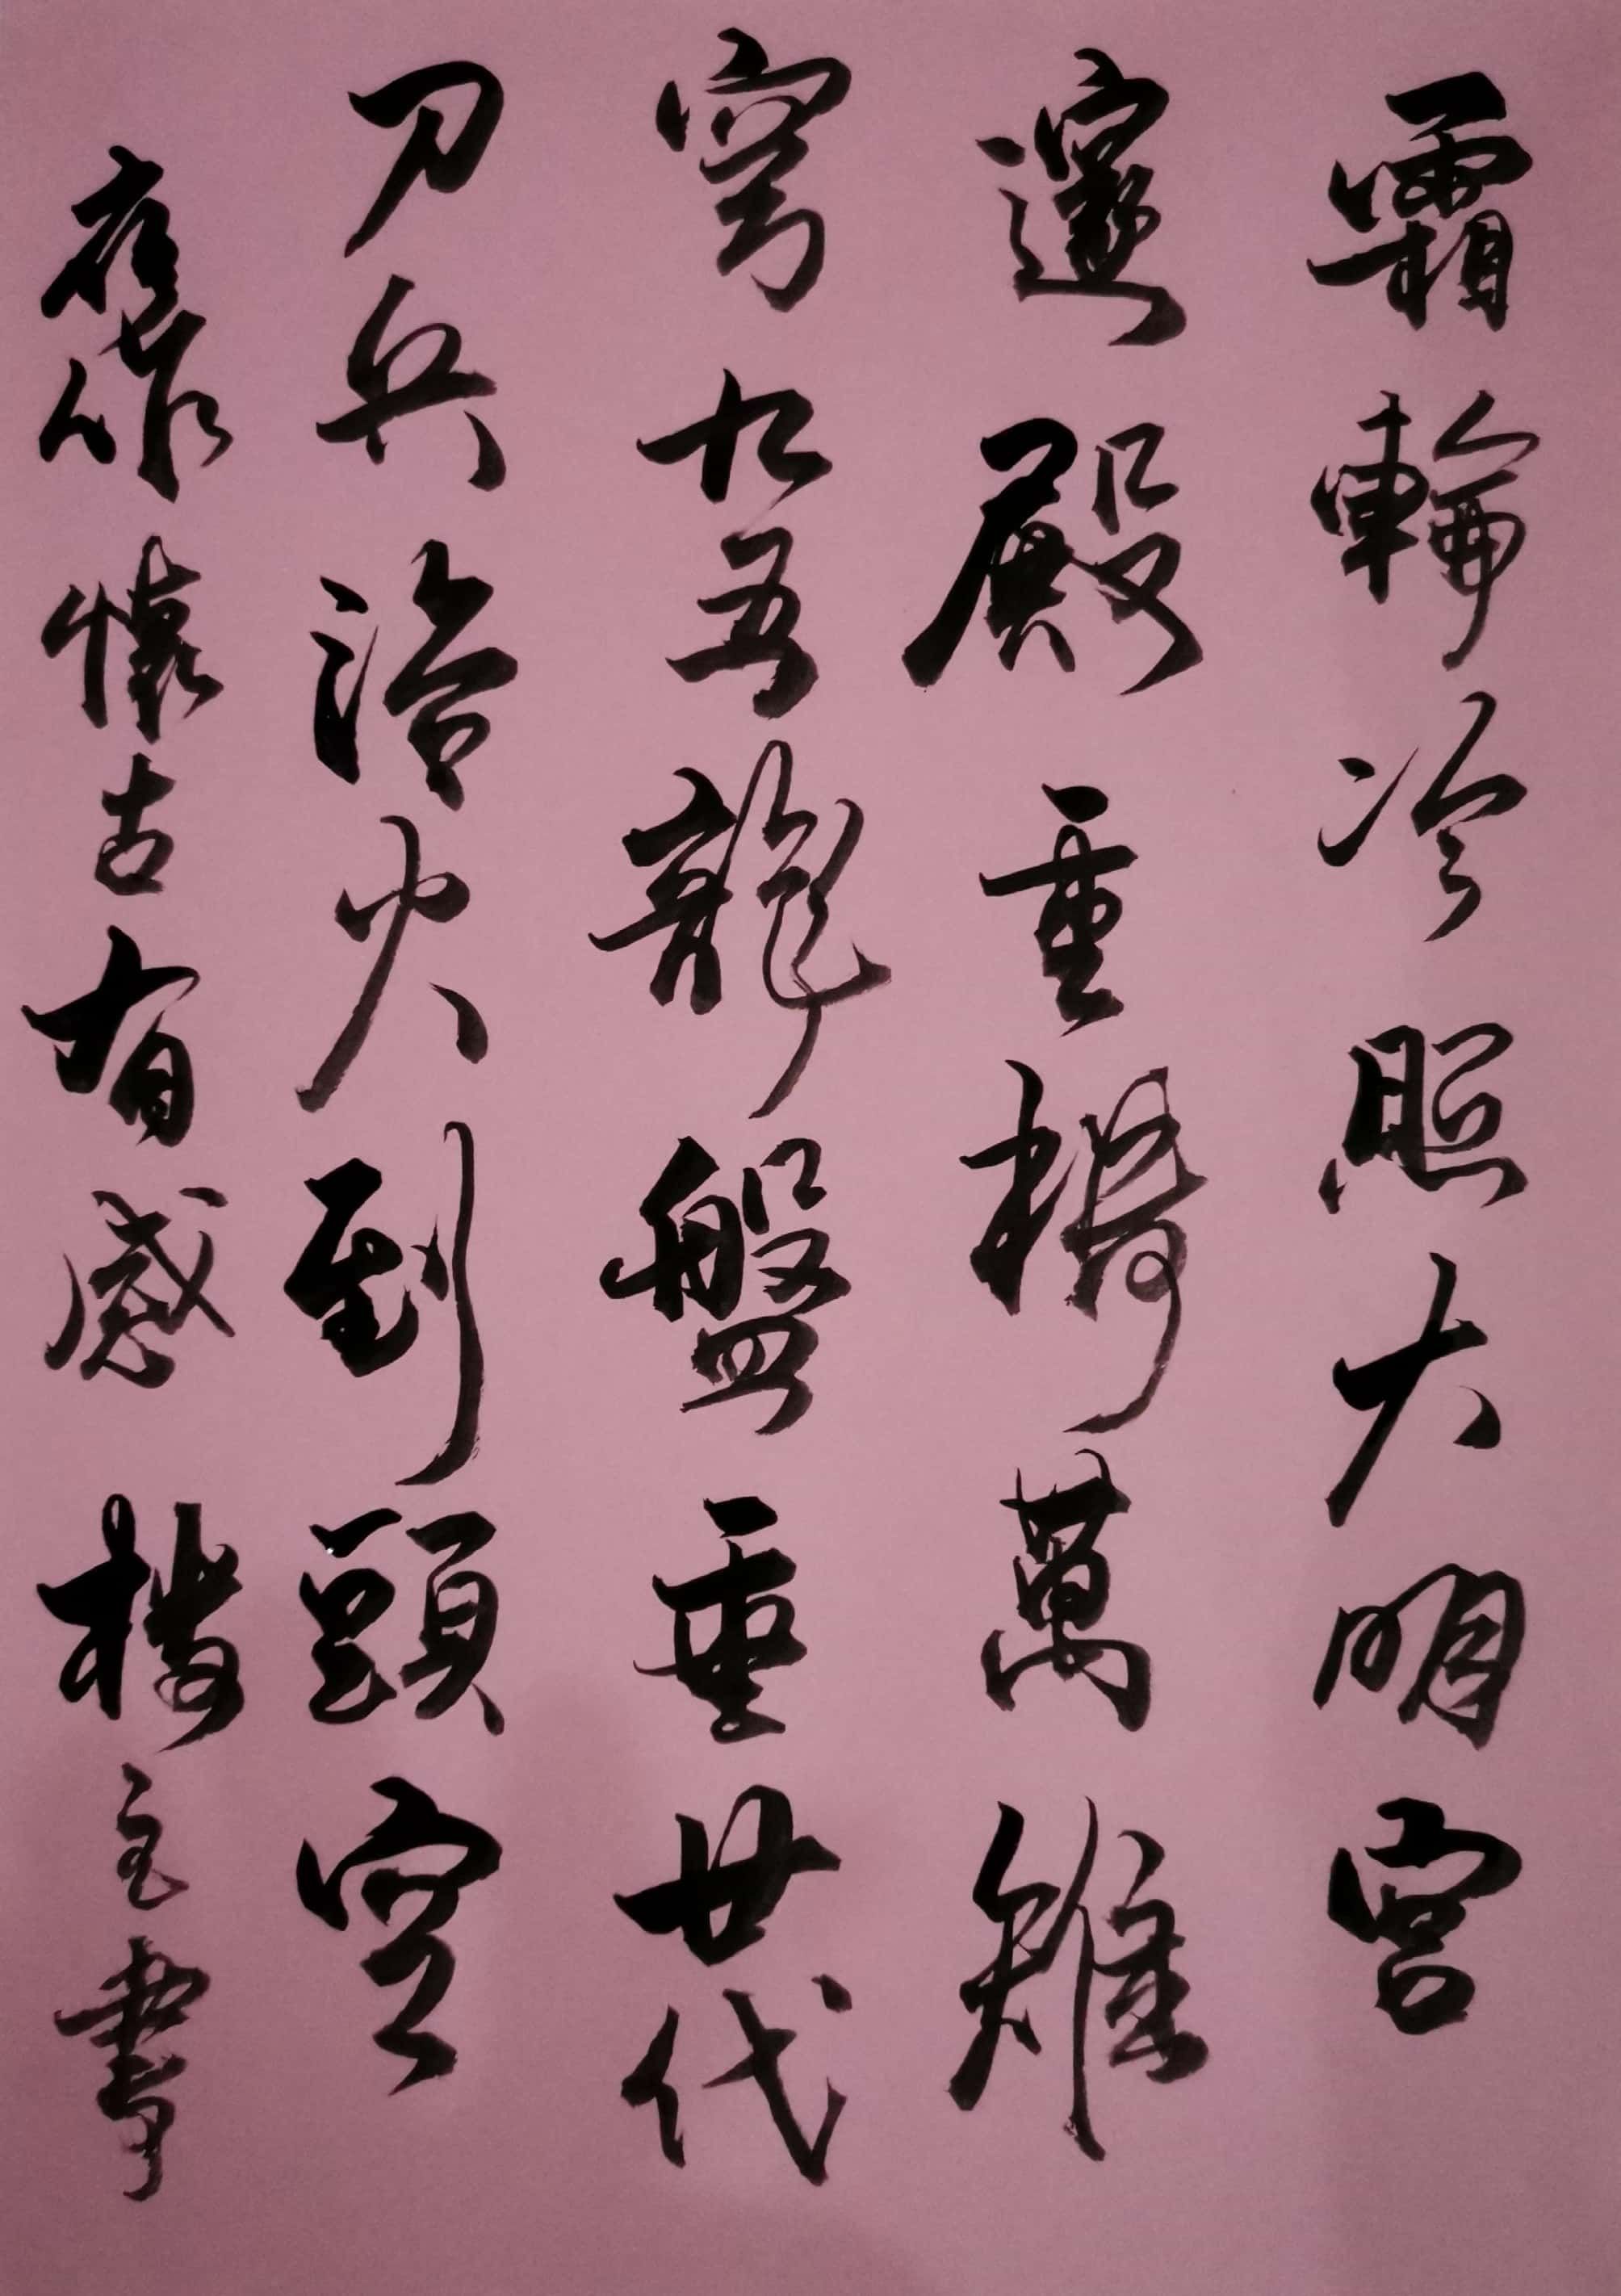 霜輪冷照大明宮
邃殿重檐萬雉
穹九五龍盤垂廿代
刀兵浴火到頭空
夜作懷古有感 樓主書